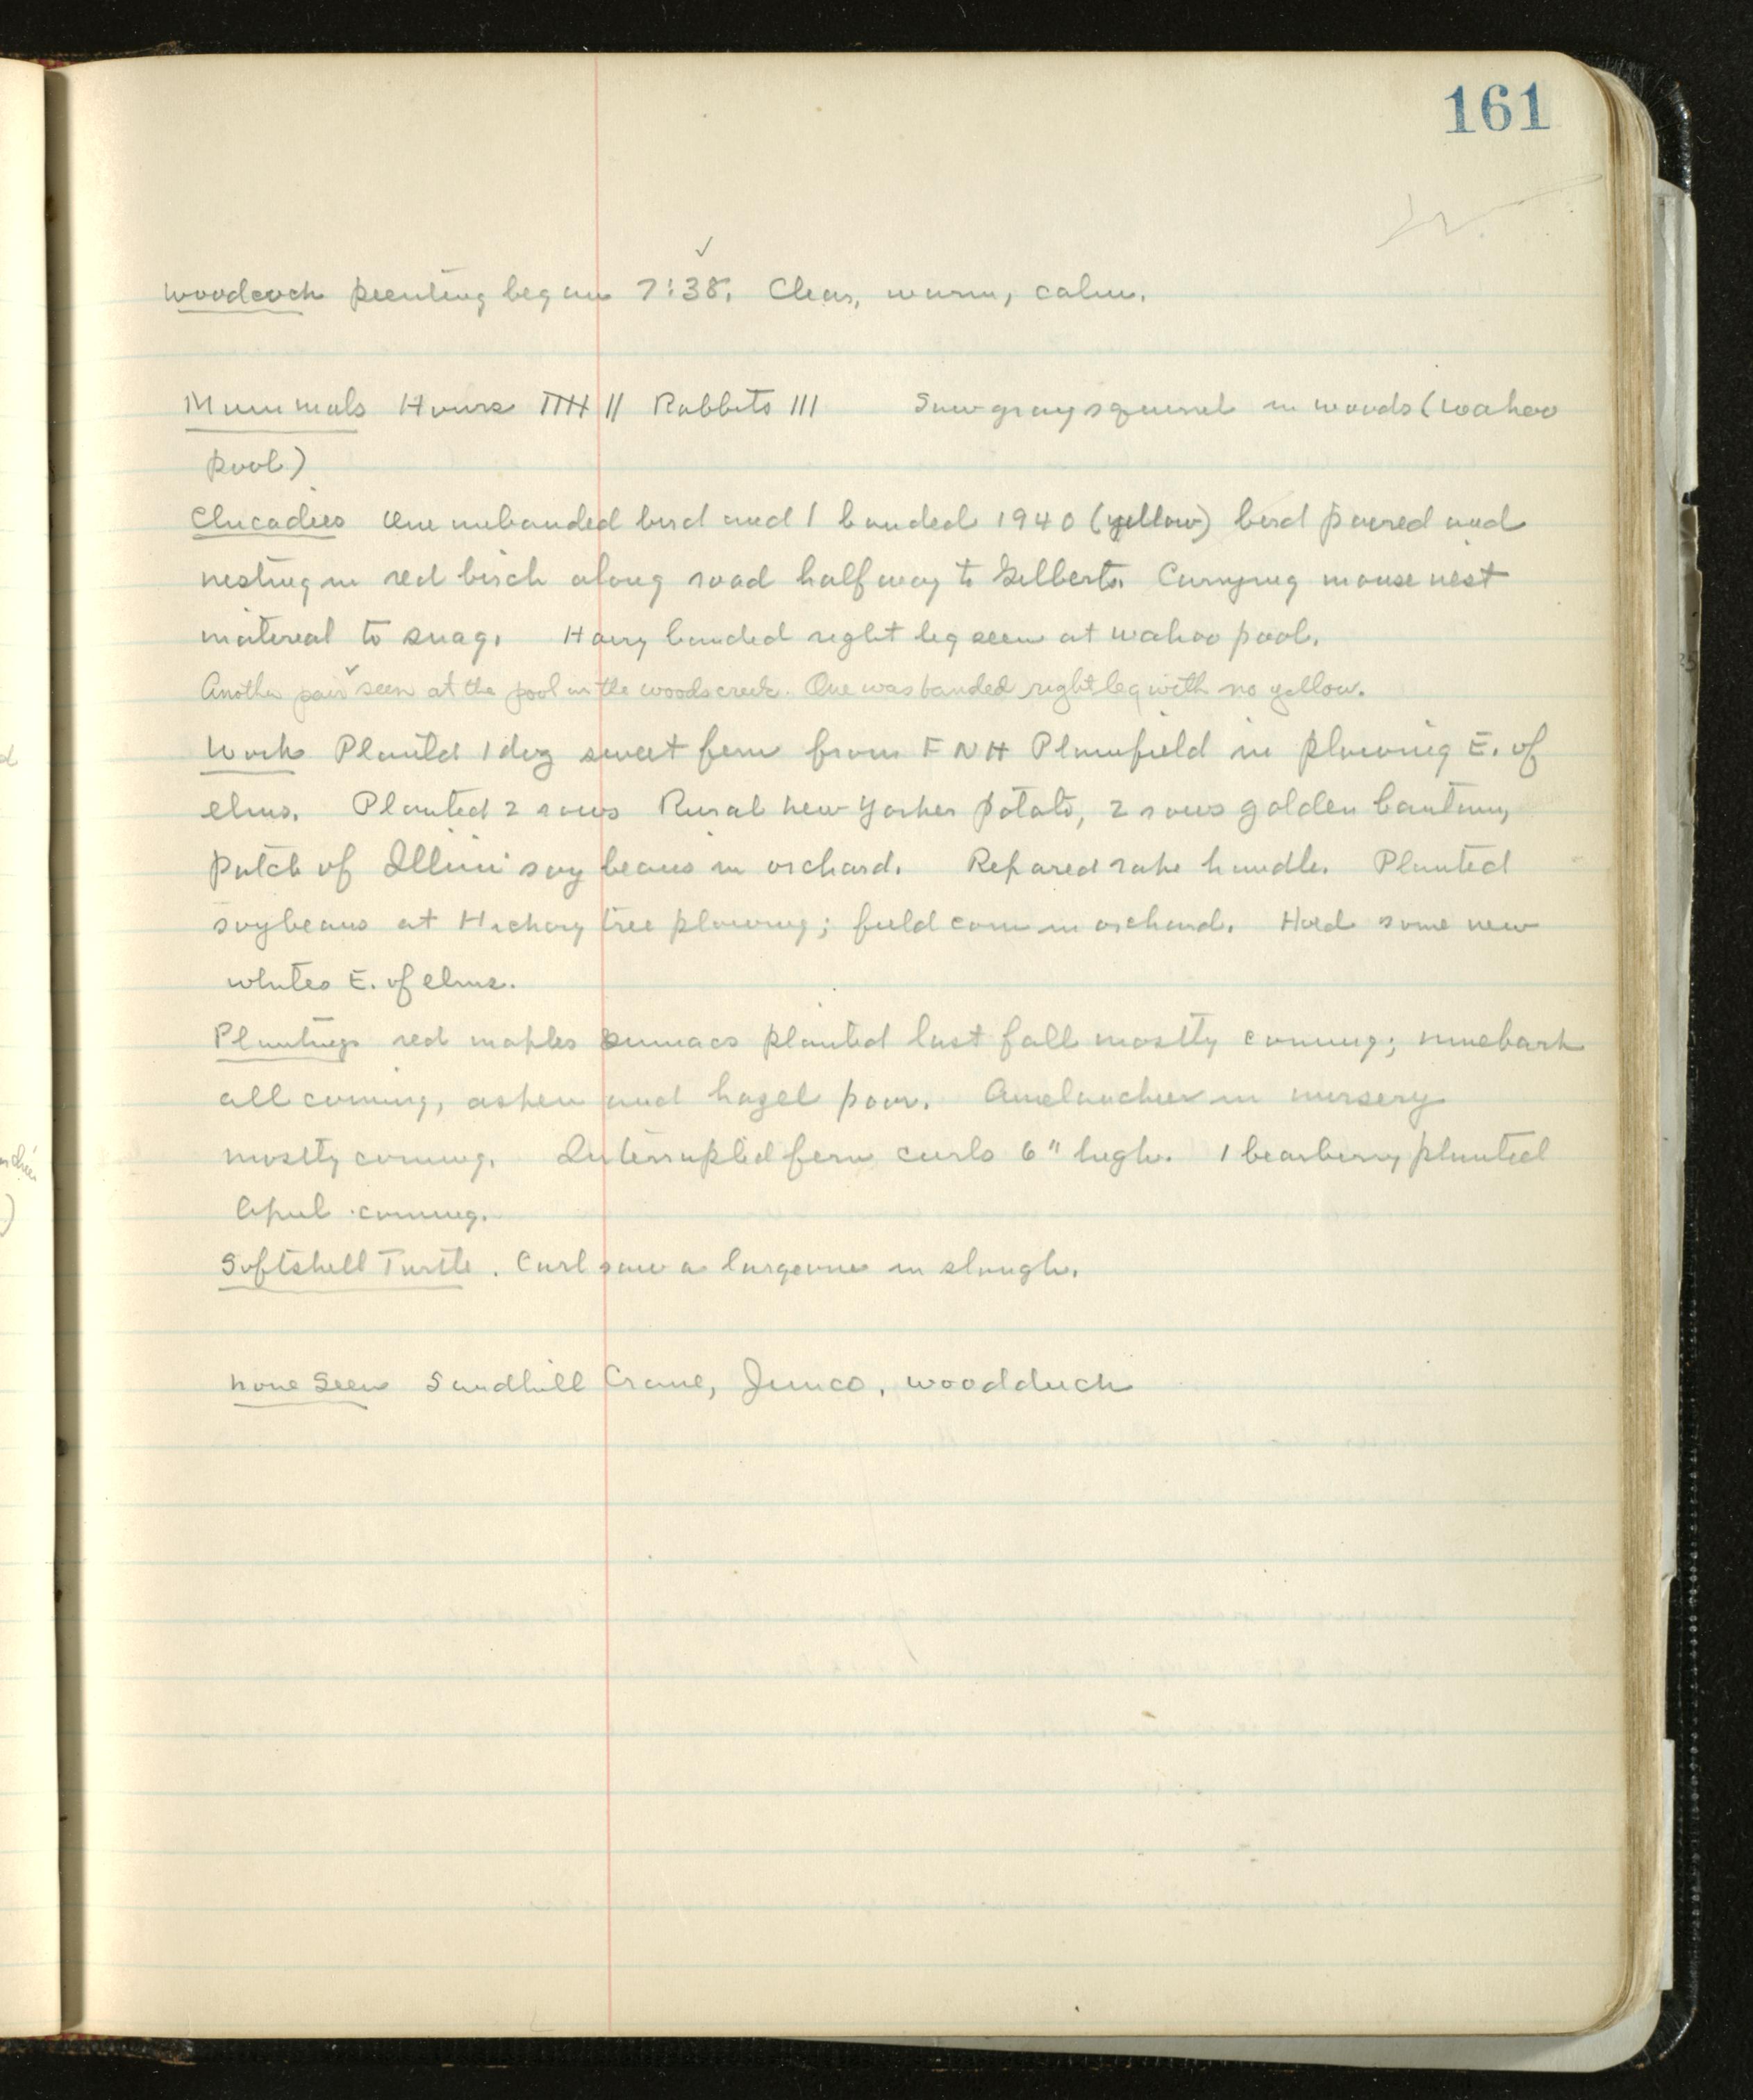 161
✓
Woodcock peenting began 7:38. Clear, warm, calm.
Mammals Hours IIII II Rabbits III Saw gray squirrel in woods (Wahoo
pool)
Chicadees One unbanded bird and 1 banded 1940 (yellow) bird paired and
nesting in red birch along road halfway to Gilberts. Carrying mouse nest
material to snag. Hairy banded right leg seen at wahoo pool.
Another pair ✓ seen at the pool in the woods creek. One was banded right leg with no yellow.
Work Planted 1 doz sweet fern from FNH Plainfield in plowing E. of
elms. Planted 2 rows Rural New Yorker potato, 2 rows golden bantam,
patch of Illini soy beans in orchard. Repared rake handle. Planted
soybeans at Hickory tree plowing; field corn in orchard. Hoed some new
whites E. of elms.
Plantings red maples sumacs planted last fall mostly coming; ninebark
all coming, aspen and hazel poor. Amelanchier in nursery
mostly coming. Interrupted fern curls 6" high. 1 bearberry planted
April coming.
Softshell Turtle. Carl saw a large one in slough.
None Seen Sandhill Crane, Junco, woodduck